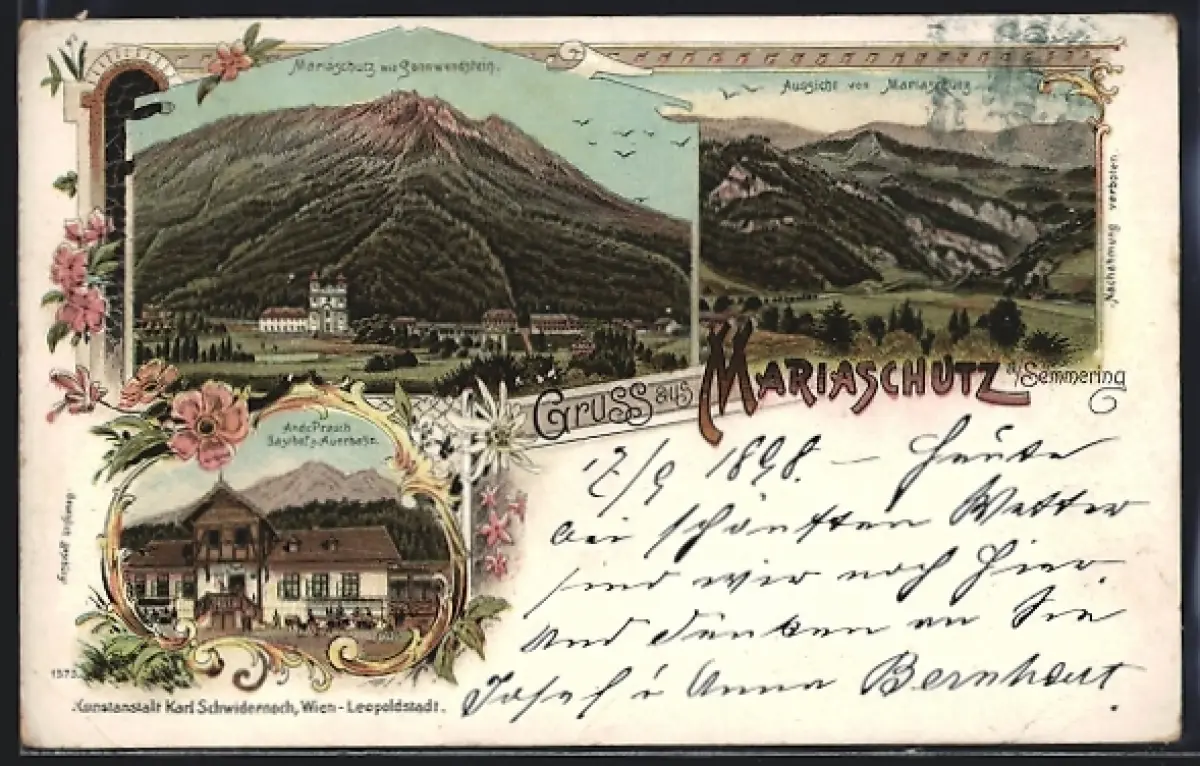 Mariaschutz mit Sonnwendstein.
Aussicht von Mariaschutz
Nachahmung verboten.
Gruss aus MARIASCHUTZ a/Semmering
Andr. Prasch
Gasthof z. Auerhahn.
17/9 1898. – Heute
bei schönsten Wetter
sind wir noch hier.
und denken an Sie
Josef & Anna Bernhart.
Gesetzlich geschützt
1573
Kunstanstalt Karl Schwidernoch, Wien-Leopoldstadt.